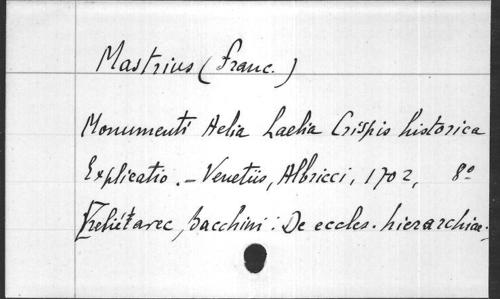 Mastrius (Franc.)
Monumenti Aelia Laelia Crispis historica
Explicatio. — Venetiis, Albricci, 1702, 8º
[Relié avec Bacchini : De eccles. hierarchiae.